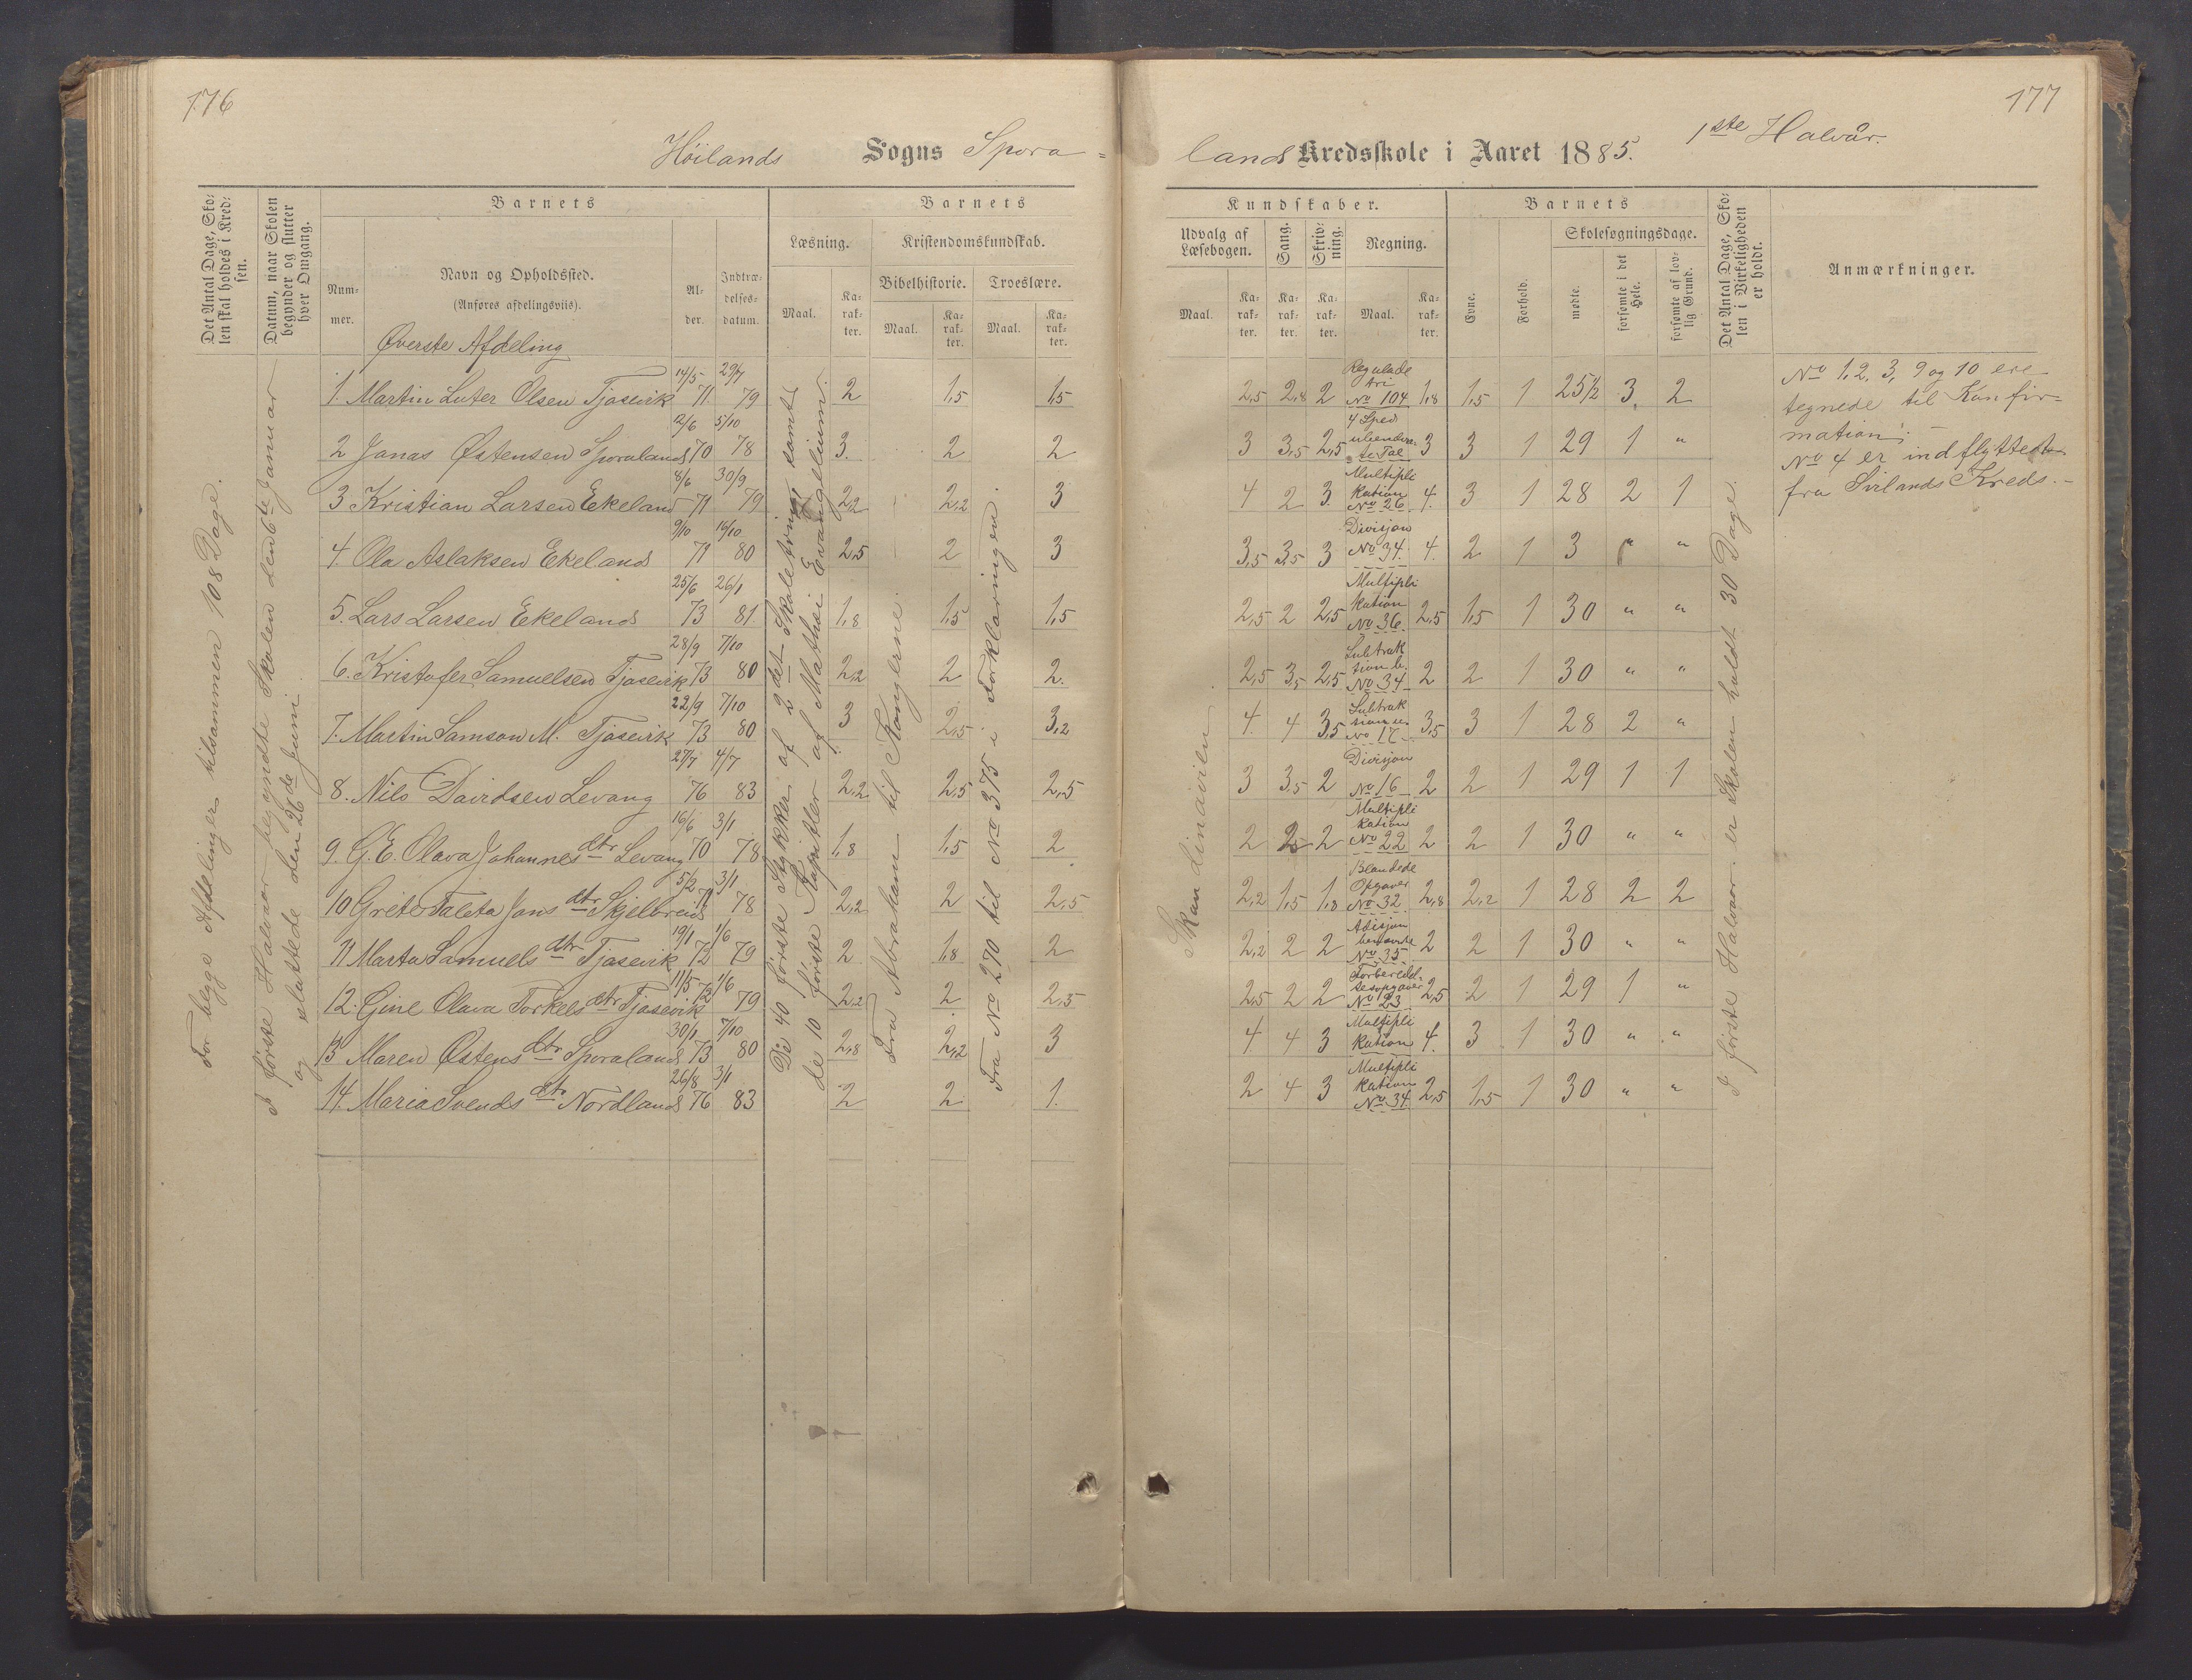 176
Höilands Sogns Spora=
Det Antal Dage, Sko-
len skal holdes i Kred-
sen.
Datum, naar Skolen
begynder og slutter
hver Omgang.
Barnets
Num-
mer.
Navn og Opholdssted.
(Anføres afdelingsviis).
Al-
der.
Indtræ-
delses-
datum.
Barnets
Læsning.
Maal.
Ka-
rak-
ter.
Kristendomskundskab.
Bibelhistorie.
Troeslære.
Maal.
Ka-
rak-
ter.
Maal.
Ka-
rak-
ter.
Øverste Afdeling
1. Martin Luter Olsen Tjasevik 14/5 71. 29/7 79 2 1,5 1,5
2 Jonas Østensen Sporaland 2/6 70 5/10 78 3. 2 2
3 Kristian Larsen Ekeland 8/6 71 30/9 79 2,2 2,2 3
4. Ola Aslaksen Ekeland 9/10 71 16/10 80 2,5 2 3
5. Lars Larsen Ekeland 25/6 73 26/1 81. 1,8 1,5 1,5
6. Kristofer Samuelsen Tjasevik 28/9 73 7/10 80 2,2 2 2.
7. Martin Samson M. Tjasevik 22/9 73 7/10 80 3 2,5 3,2
8. Nils Davidsen Levang 27/7 76 4/7 83 2,2 2,5 2,5
9. G. E. Olava Johannes dtr Levang 16/6 70 3/1 78 1,8 1,5 2
10 Grete Taleta Jans dtr Skjelbreid 5/2 71 3/1 78 2,2 2 2,5
11 Marta Samuels dtr Tjasevik 19/1 72 1/6 79 2 1,8 2
12. Gine Olava Torkels dtr Tjasevik 11/5 72 1/6 79 2,2 2 2,5
13 Maren Østens dtr Sporaland 30/1 73 7/10 80 2,8 2,2 3
14. Maria Svends dtr Nordland 26/8 76 3/1 83 2 2 1.
For begge Afdelinger tilsammen 108 Dage.
I første Halvaar begyndte Skolen den 6te Januar
og sluttede den 26de Juni.
De 40 første Stykker af 2det Skoletrin samt
de 10 første Kapitler af Mathæi Evangelium.
Fra Abraham til Kongerne.
Fra No 270 til No 375 i Forklaringen.
177
lands Kredsskole i Aaret 1885. 1ste Halvår.
Kundskaber.
Udvalg af
Læsebogen.
Maal.
Ka-
rak-
ter.
Sang.
Ka-
rak-
ter.
Skriv-
ning.
Ka-
rak-
ter.
Regning.
Maal.
Ka-
rak-
ter.
Barnets
Evne.
Forhold.
Skolesøgningsdage.
mødte.
forsømte i det
Hele.
forsømte af lov-
lig Grund.
Det Antal Dage, Sko-
len i Virkeligheden
er holdt.
Anmærkninger.
2,5 2,8 2 Reguladetri No 104 1,8 1,5 1 25½ 3 2
3 3,5 2,5 4 Sped ubenævnte Tal 3 3 1 29 1 "
4 2 3. Multiplikation No 26 4. 3 1 28 2 1
3,5 3,5 3 Divisjon No 34. 4. 2 1 3 " "
2,5 2 2,5 Multiplikation No 36. 2,5 1,5 1 30 " "
2,5 3,5 2,5 Subtraktion b. No 34 2 2 1 30 " "
4. 4 3,5 Subtraksion u. No 17 3,5 3 1 28 2 "
3 3,5 2 Divisjon No 16 2 2 1 29 1 1
2 2,5 2 Multiplikation No 22 2 2 1 30 " "
2,2 1,5 1,8 Blandede Opgaver No 32 2,8 2,2 1 28 2 2
2,2 2 2 Adisjon benævnte No 35 2 2 1 30 " "
2,5 2 2 Forberedelsesopgaver No 23 2,5 2 1 29 1 "
4. 4 3 Multiplikation 4. 3 1 30 " "
2 4 3 Multiplikation No 34. 2,5 1,5 1 30 " "
Skandinavien.
I første Halvaar er Skolen holdt 30 Dage.
No 1, 2, 3, 9 og 10 ere
tegnede til Konfir=
mation. -
No 4 er indflyttet
fra Svilands Kreds. -